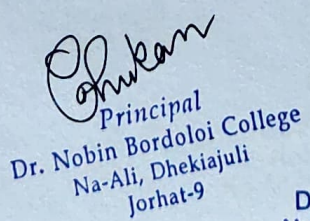 Principal
Dr. Nobin Bordoloi College
Na-Ali, Dhekiajuli
Jorhat-9
D